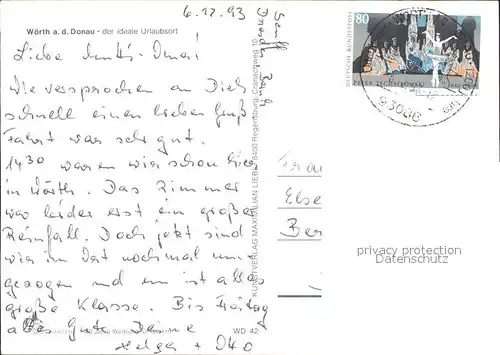 6.12.93
Wörth a. d. Donau - der ideale Urlaubsort
Liebe Oma!
Wie versprochen an Dich
schnell einen lieben Gruß
Fahrt war sehr gut.
1430 waren wir schon hier
in Wörth. Das Zimmer
war leider erst ein großer
Reinfall. Doch jetzt sind
wir im Ort nochmal um
gezogen und es ist alles
große Klasse. Bis Freitag
alles Gute Deine
Helga + Otto
WD 42
KUNSTVERLAG MAXIMILIAN LIEBL, 8400 Regensburg, Cranachweg 10
80
DEUTSCHE BUNDESPOST
PETER TSCHAIKOWSKY
93086
Frau
Else
Ber
privacy protection
Datenschutz